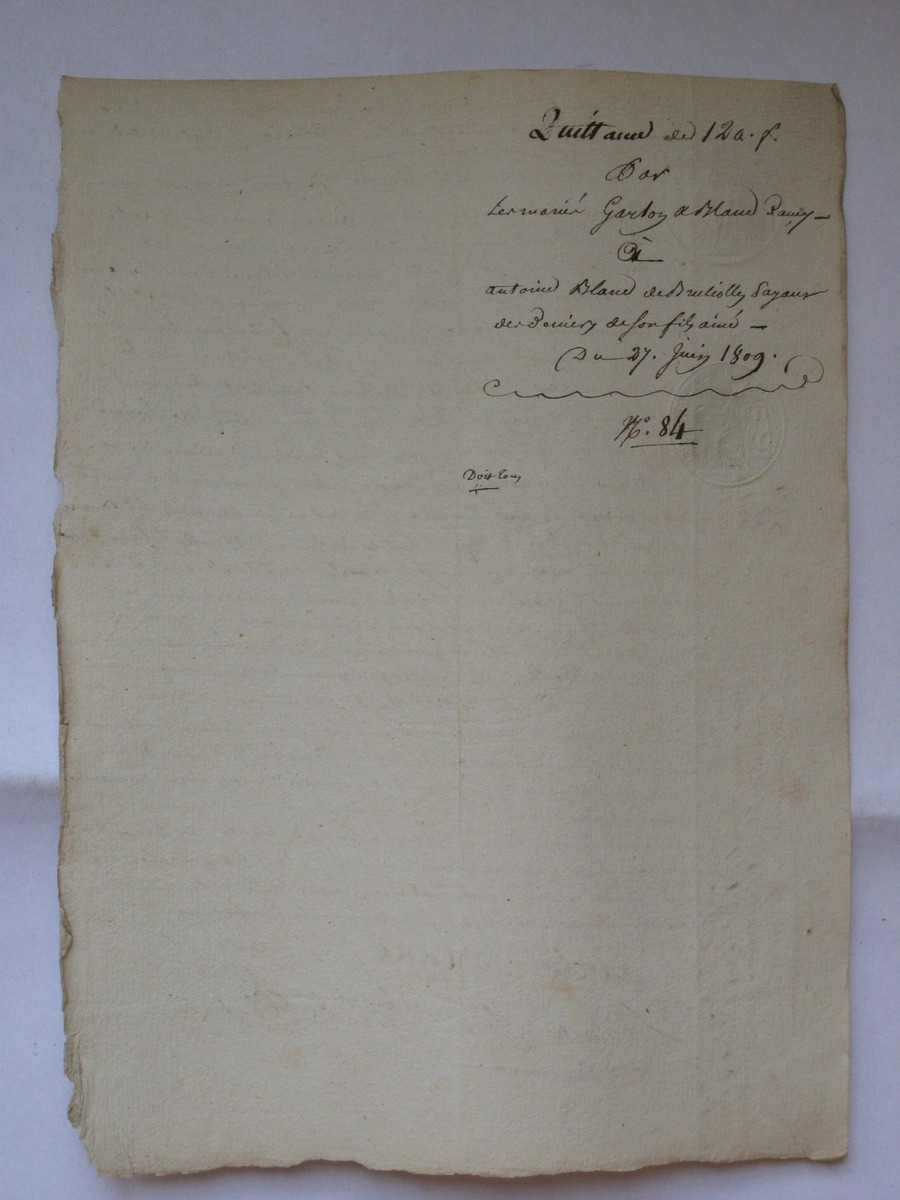 Quittance de 120. f.
Par
Les mariés Garlon & Blanc Ramy
À
antoine Blanc de Bruliolles payant
des Deniers de son fils ainé
Du 27. Juin 1809.
N°. 84
Doit Tout